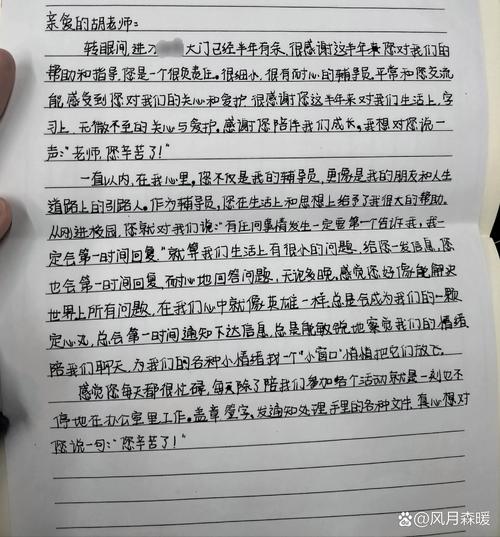 亲爱的胡老师:
转眼间,进入 大门已经半年有余,很感谢这半年来您对我们的
帮助和指导,您是一个很负责任。很细心,很有耐心的辅导员,平常和您交流
能感受到您对我们的关心和爱护,很感谢您这半年来对我们生活上,学
习上,无微不至的关心与爱护。感谢您陪伴我们成长。我想对您说一
声:"老师,您辛苦了!"
一直以内,在我心里。您不仅是我的辅导员,更像是我的朋友和人生
道路上的引路人。作为辅导员,您在生活和思想上给予了我很大的帮助。
从刚进校园,您就对我们说:"有任何事情发生一定要第一个告诉我,我一
定会第一时间回复"就算我们生活上有很小的问题,给您一发信息,您
也会第一时间回复,耐心地回答问题,无论多晚,感觉您好像能解决
世界上所有问题,在我们心中就像英雄一样,总是会成为我们的一颗
定心丸,总会第一时间通知下达信息,总是能敏锐地察觉我们的情绪
陪我们聊天,为我们的各种小情绪找一个"小窗口"悄悄把它们放飞。
感觉您每天都很忙碌,每天除了陪我们参加各个活动就是一刻也不
停地在办公室里工作。盖章签字,发通知处理手里的各种文件,真心想对
您说一句:"您辛苦了!"
@风月森暖